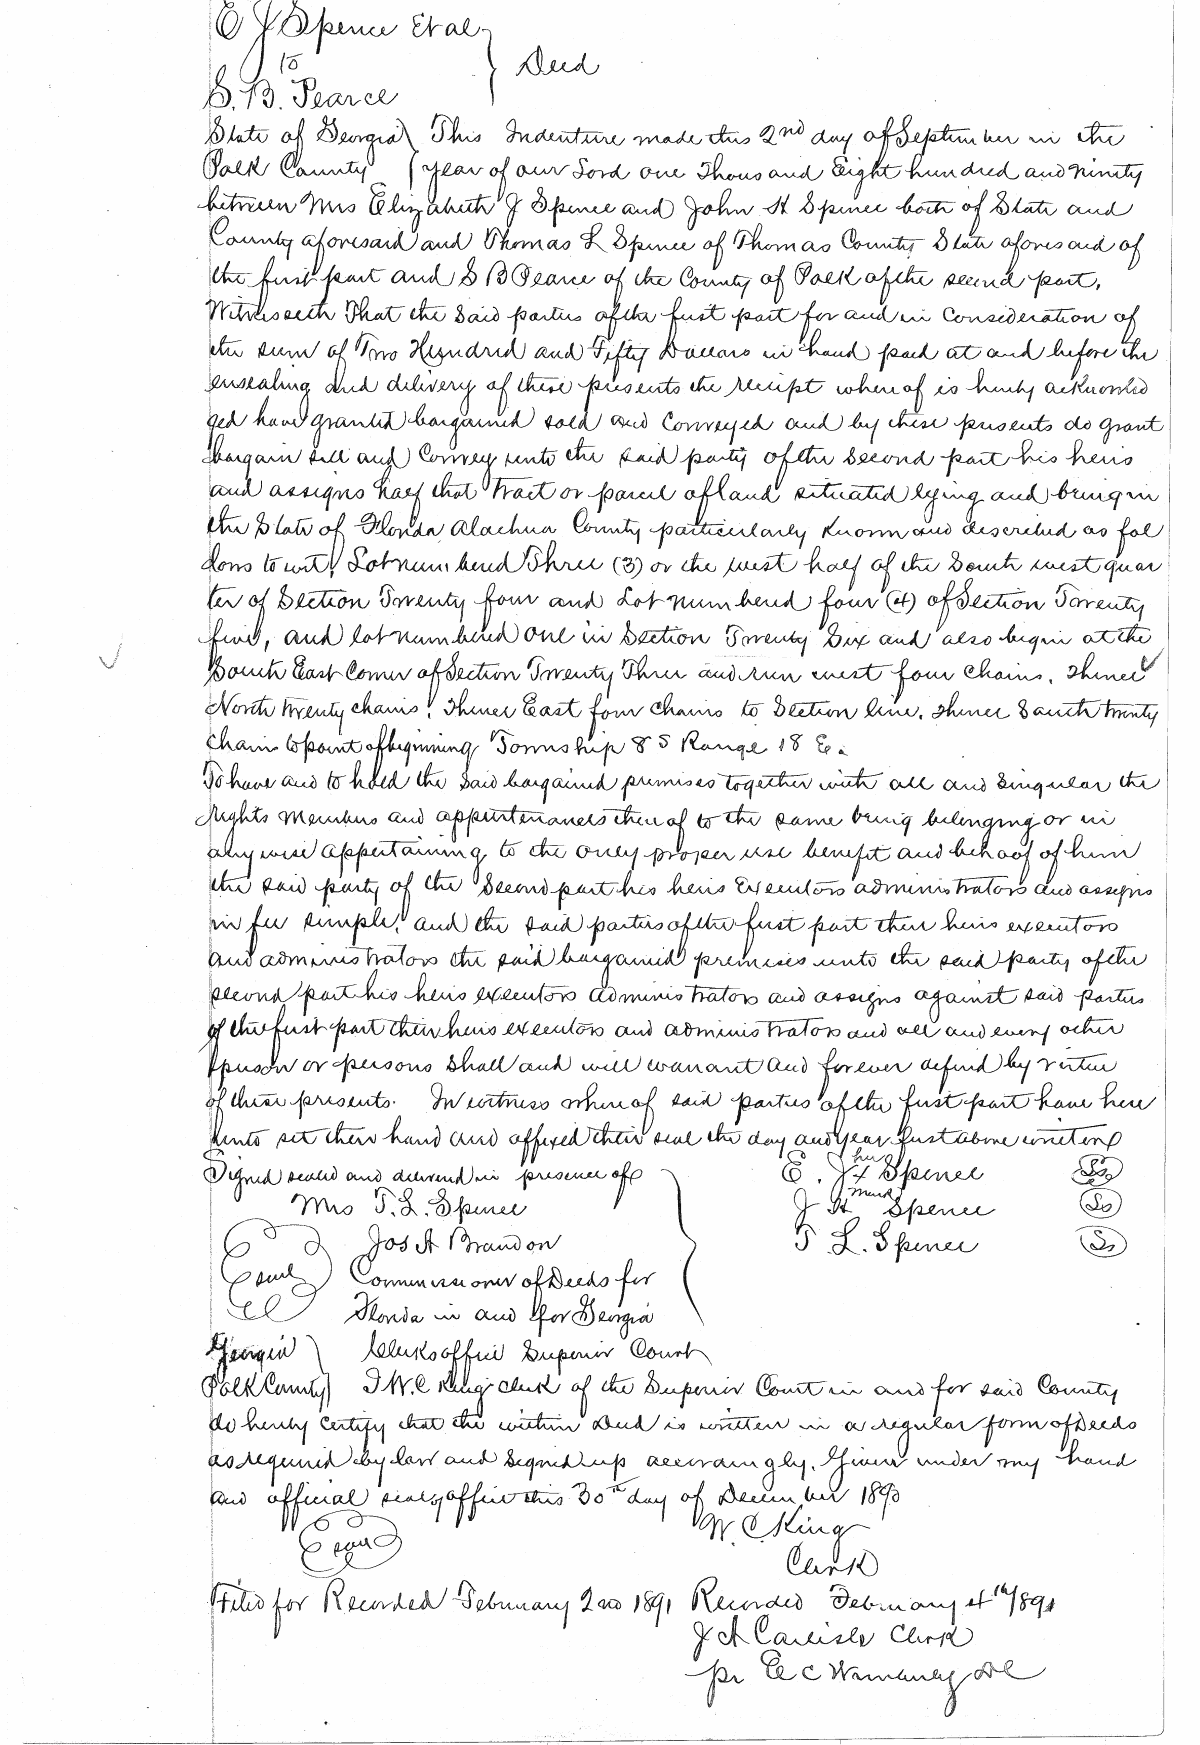 E J Spence Et al
to } Deed
S. B. Pearce
State of Georgia } This Indenture made this 2nd day of September in the
Polk County } year of our Lord one Thousand Eight hundred and ninety
between Mrs Elizabeth J Spence and John H Spence both of State and
County aforesaid and Thomas L Spence of Thomas County State aforesaid of
the first part and S B Pearce of the County of Polk of the second part,
Witnesseth That the said parties of the first part for and in Consideration of
the sum of Two Hundred and Fifty Dollars in hand paid at and before the
ensealing and delivery of these presents the receipt whereof is hereby acknowled
ged have granted bargained sold and Conveyed and by these presents do grant
bargain sell and Convey unto the said party of the Second part his heirs
and assigns half that Tract or parcel of land situated lying and being in
the State of Florida Alachua County particularly known and described as fol
lows to wit, Lot numbered Three (3) or the west half of the South west quar
ter of Section Twenty four and Lot numbered four (4) of Section Twenty
five, and lot numbered One in Section Twenty Six and also begin at the
South East Corner of Section Twenty Three and run west four Chains, Thence
North twenty chains, Thence East four Chains to Section line, Thence South twenty
Chains to point of beginning Township 8 S Range 18 E.
To have and to hold the said bargained premises together with all and singular the
Rights Members and appurtenances thereof to the same being belonging or in
anywise appertaining to the only proper use benefit and behoof of him
the said party of the Second part his heirs Executors administrators and assigns
in fee simple, and the said parties of the first part their heirs executors
and administrators the said bargained premises unto the said party of the
second part his heirs executors administrators and assigns against said parties
of the first part their heirs executors and administrators and all and every other
person or persons Shall and will warrant and forever defend by virtue
of these presents. In witness whereof said parties of the first part have here
unto set their hand and affixed their seal the day and year first above written
Signed sealed and delivered in presence of } E. J her x mark Spence (Ls)
Mrs T. L. Spence J H Spence (Ls)
Jos A Brandon T L. Spence (Ls)
Seal Commissioner of Deeds for
Florida in and for Georgia
Georgia } Clerks office Superior Court
Polk County } I W. C King clerk of the Superior Court in and for said County
do hereby certify that the within Deed is written in a regular form of Deeds
as required by law and Signed up accordingly. Given under my hand
and official seal of office this 30th day of December 1890
Seal W. C. King
Clerk
Filed for Recorded February 2nd 1891 Recorded February 4th/891
J A Carlisle Clerk
pr E C DC